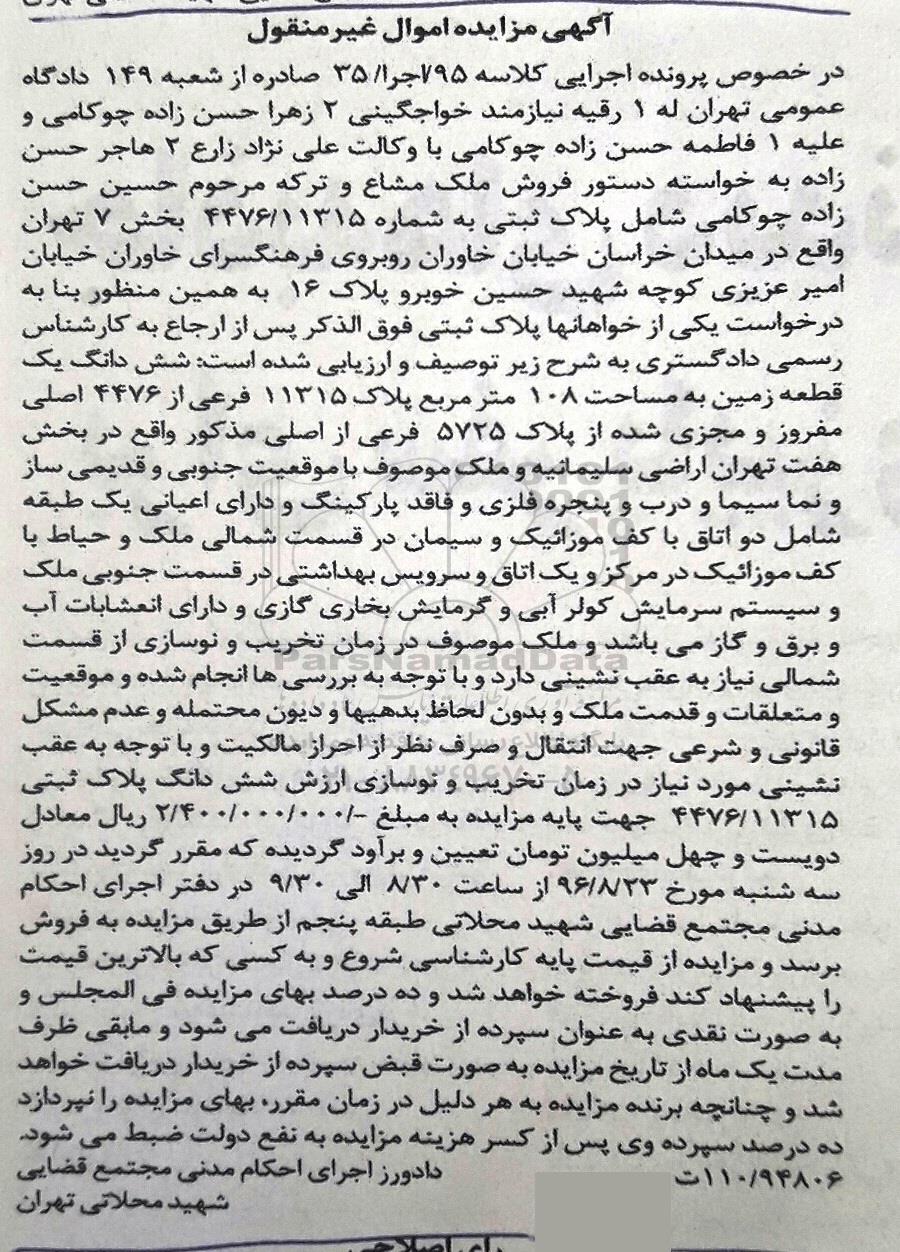 آگهی مزایده اموال غیرمنقول
در خصوص پرونده اجرایی کلاسه ۹۵/اجرا/۳۵ صادره از شعبه ۱۴۹ دادگاه
عمومی تهران له ۱ رقیه نیازمند خواجگینی ۲ زهرا حسن زاده چوکامی و
علیه ۱ فاطمه حسن زاده چوکامی با وکالت علی نژاد زارع ۲ هاجر حسن
زاده به خواسته دستور فروش ملک مشاع و ترکه مرحوم حسین حسن
زاده چوکامی شامل پلاک ثبتی به شماره ۴۴۷۶/۱۱۳۱۵ بخش ۷ تهران
واقع در میدان خراسان خیابان خاوران روبروی فرهنگسرای خاوران خیابان
امیر عزیزی کوچه شهید حسین خوبرو پلاک ۱۶ به همین منظور بنا به
درخواست یکی از خواهانها پلاک ثبتی فوق الذکر پس از ارجاع به کارشناس
رسمی دادگستری به شرح زیر توصیف و ارزیابی شده است: شش دانگ یک
قطعه زمین به مساحت ۱۰۸ متر مربع پلاک ۱۱۳۱۵ فرعی از ۴۴۷۶ اصلی
مفروز و مجزی شده از پلاک ۵۷۲۵ فرعی از اصلی مذکور واقع در بخش
هفت تهران اراضی سلیمانیه و ملک موصوف با موقعیت جنوبی و قدیمی ساز
و نما سیما و درب و پنجره فلزی و فاقد پارکینگ و دارای اعیانی یک طبقه
شامل دو اتاق با کف موزائیک و سیمان در قسمت شمالی ملک و حیاط با
کف موزائیک در مرکز و یک اتاق و سرویس بهداشتی در قسمت جنوبی ملک
و سیستم سرمایش کولر آبی و گرمایش بخاری گازی و دارای انعشابات آب
و برق و گاز می باشد و ملک موصوف در زمان تخریب و نوسازی از قسمت
ParsNamadData
شمالی نیاز به عقب نشینی دارد و با توجه به بررسی ها انجام شده و موقعیت
و متعلقات و قدمت ملک و بدون لحاظ بدهیها و دیون محتمله و عدم مشکل
قانونی و شرعی جهت انتقال و صرف نظر از احراز مالکیت و با توجه به عقب
نشینی مورد نیاز در زمان تخریب و نوسازی ارزش شش دانگ پلاک ثبتی
۴۴۷۶/۱۱۳۱۵ جهت پایه مزایده به مبلغ -/۲/۴۰۰/۰۰۰/۰۰۰ ریال معادل
دویست و چهل میلیون تومان تعیین و برآود گردیده که مقرر گردید در روز
سه شنبه مورخ ۹۶/۸/۲۳ از ساعت ۸/۳۰ الی ۹/۳۰ در دفتر اجرای احکام
مدنی مجتمع قضایی شهید محلاتی طبقه پنجم از طریق مزایده به فروش
برسد و مزایده از قیمت پایه کارشناسی شروع و به کسی که بالاترین قیمت
را پیشنهاد کند فروخته خواهد شد و ده درصد بهای مزایده فی المجلس و
به صورت نقدی به عنوان سپرده از خریدار دریافت می شود و مابقی ظرف
مدت یک ماه از تاریخ مزایده به صورت قبض سپرده از خریدار دریافت خواهد
شد و چنانچه برنده مزایده به هر دلیل در زمان مقرر، بهای مزایده را نپردازد
ده درصد سپرده وی پس از کسر هزینه مزایده به نفع دولت ضبط می شود.
۱۱۰/۹۴۸۰۶ت دادورز اجرای احکام مدنی مجتمع قضایی
شهید محلاتی تهران
رای اصلاحی